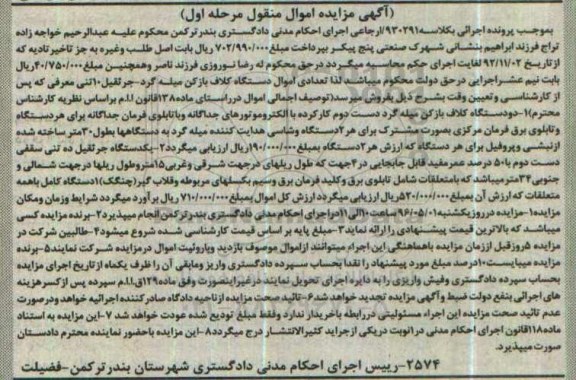 (آگهی مزایده اموال منقول مرحله اول)
بموجب پرونده اجرائی بکلاسه ۹۳۰۲۹۱/ارجاعی اجرای احکام مدنی دادگستری بندرترکمن محکوم علیه عبدالرحیم خواجه زاده
تراج فرزند ابراهیم بنشانی شهرک صنعتی پنج پیکر بپرداخت مبلغ ۷۰۲/۹۹۰/۰۰۰ ریال بابت اصل طلب وغیره به جز تاخیر تادیه که
از تاریخ ۹۲/۱۱/۰۲ لغایت اجرای حکم محاسبه میگردد درحق محکوم له رضا نوروزی فرزند ناصر وهمچنین مبلغ ۴۰/۷۵۰/۰۰۰ ریال
بابت نیم عشراجرایی درحق دولت محکوم میباشد لذا تعدادی اموال دستگاه کلاف بازکن میله گرد-جرثقیل ۱۰تنی معرفی که پس
از کارشناسی وتعیین وقت بشرح ذیل بفروش میرسد(توصیف اجمالی اموال درراستای ماده ۱۳۸قانون ا.م براساس نظریه کارشناس
محترم)۱-دودستگاه کلاف بازکن میله گرد دست دوم کارکرده با الکتروموتورهای جداگانه وباتابلوی فرمان جداگانه برای هردستگاه
وتابلوی برق فرمان مرکزی بصورت مشترک برای هر۲دستگاه وشاسی هدایت کننده میله گرد به دستگاهها بطول ۳۰متر ساخته شده
ازنبشی وپروفیل برای هر دستگاه که ارزش هر ۲دستگاه بمبلغ ۱۹۰/۰۰۰/۰۰۰ریال ارزیابی میگردد۲-یکدستگاه جرثقیل ده تنی سقفی
دست دوم با۵۰ درصد عمرمفید قابل جابجایی در۴جهت که طول ریلهای درجهت شرقی وغربی ۱۵متروطول ریلها درجهت شمالی و
جنوبی ۳۴مترمیباشد که بامتعلقات شامل تابلوی برق وکلید فرمان برق وسیم بکسلهای مربوطه وقلاب گیر(چنگک)۱دستگاه کامل باهمه
متعلقات که ارزش آن بمبلغ ۵۲۰/۰۰۰/۰۰۰ریال ارزیابی میگردد ارزش کل اموال بمبلغ ۷۱۰/۰۰۰/۰۰۰ ریال برآورد میگردد شرایط وزمان ومکان
مزایده۱-مزایده درروزیکشنبه ۹۶/۰۵/۰۱ ساعت ۱۰الی ۱۱دراجرای احکام مدنی دادگستری بندرترکمن انجام میپذیرد۲-برنده مزایده کسی
میباشد که بالاترین قیمت پیشنهادی را ارائه نماید۳-مبلغ پایه بر اساس قیمت کارشناسی شده شروع میشود۴-طالبین شرکت در
مزایده ۵روزقبل اززمان مزایده باهماهنگی این اجراء میتوانند ازاموال موصوف بازدید وباروئیت اموال درمزایده شرکت نمایند۵-برنده
مزایده میبایست ۱۰درصد مبلغ مورد پیشنهاد را نقدا بحساب سپرده دادگستری واریز ومابقی آن را ظرف یکماه ازتاریخ اجرای مزایده
بحساب سپرده دادگستری وفیش واریزی را به دایره اجرای تحویل نمایند درغیراینصورت وفق ماده ۱۲۹ق.ا.م سپرده پس ازکسرهزینه
های اجرائی بنفع دولت ضبط وآگهی مزایده تجدید خواهد شد۶-تائید صحت مزایده ازناحیه دادگاه صادرکننده اجرائیه خواهد ودرصورت
عدم تائید صحت مزایده این اجراء مسئولیتی دررابطه باخریدار ندارد وفقط مبلغ تودیع شده عودت خواهد شد ۷-این مزایده به استناد
ماده ۱۱۸قانون اجرای احکام مدنی درانوبت دریکی ازجراید کثیرالانتشار درج میگردد۸-این مزایده باحضور نماینده محترم دادستان
صورت میپذیرد.
۲۵۷۴-رییس اجرای احکام مدنی دادگستری شهرستان بندرترکمن-فضیلت